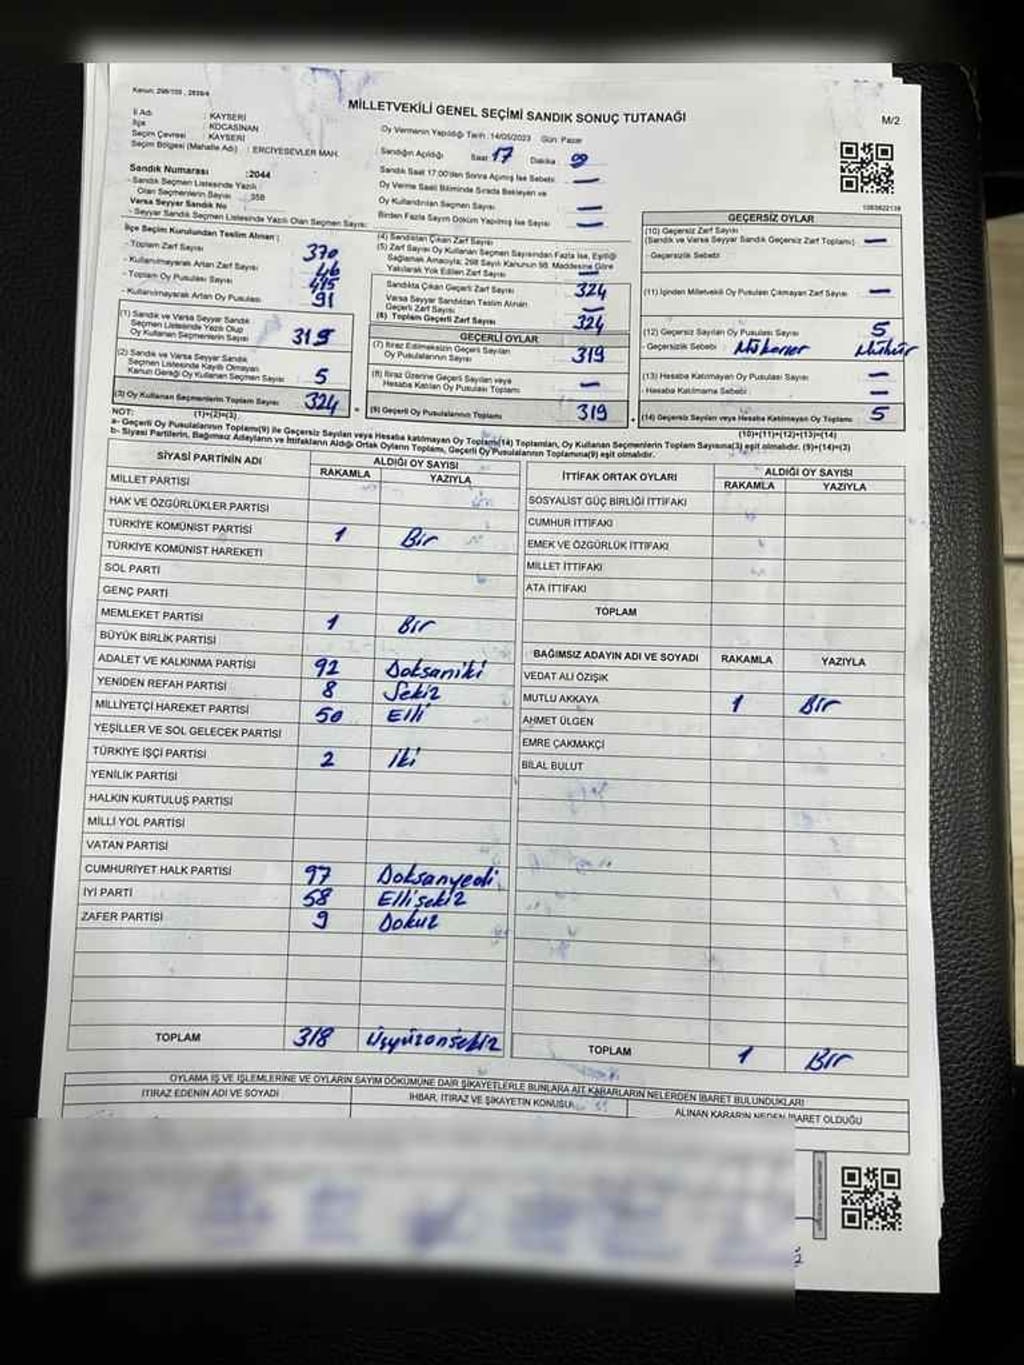 Kanun: 298/105 , 2839/4
MİLLETVEKİLİ GENEL SEÇİMİ SANDIK SONUÇ TUTANAĞI
M/2
İl Adı : KAYSERİ
İlçe : KOCASİNAN
Seçim Çevresi : KAYSERİ
Seçim Bölgesi (Mahalle Adı) : ERCİYESEVLER MAH.
Oy Vermenin Yapıldığı Tarih : 14/05/2023 Gün: Pazar
Sandığın Açıldığı Saat 17 Dakika
Sandık Saat 17.00'den Sonra Açılmış İse Sebebi —
Oy Verme Saati Bitiminde Sırada Bekleyen ve
Oy Kullandırılan Seçmen Sayısı —
Birden Fazla Sayım Döküm Yapılmış İse Sayısı —
Sandık Numarası :2044
- Sandık Seçmen Listesinde Yazılı
Olan Seçmenlerin Sayısı : 358
Varsa Seyyar Sandık No
- Seyyar Sandık Seçmen Listesinde Yazılı Olan Seçmen Sayısı:
İlçe Seçim Kurulundan Teslim Alınan :
- Toplam Zarf Sayısı 370
- Kullanılmayarak Artan Zarf Sayısı 46
- Toplam Oy Pusulası Sayısı 415
- Kullanılmayarak Artan Oy Pusulası 91
(1) Sandık ve Varsa Seyyar Sandık
Seçmen Listesinde Yazılı Olup
Oy Kullanan Seçmenlerin Sayısı 319
(2) Sandık ve Varsa Seyyar Sandık
Seçmen Listesinde Kayıtlı Olmayan
Kanun Gereği Oy Kullanan Seçmen Sayısı 5
(3) Oy Kullanan Seçmenlerin Toplam Sayısı 324
(1)+(2)=(3)
(4) Sandıktan Çıkan Zarf Sayısı
(5) Zarf Sayısı Oy Kullanan Seçmen Sayısından Fazla İse, Eşitliği
Sağlamak Amacıyla; 298 Sayılı Kanunun 98. Maddesine Göre
Yakılarak Yok Edilen Zarf Sayısı —
Sandıkta Çıkan Geçerli Zarf Sayısı 324
Varsa Seyyar Sandıktan Teslim Alınan
Geçerli Zarf Sayısı —
(6) Toplam Geçerli Zarf Sayısı 324
GEÇERLİ OYLAR
(7) İtiraz Edilmeksizin Geçerli Sayılan
Oy Pusulalarının Sayısı 319
(8) İtiraz Üzerine Geçerli Sayılan veya
Hesaba Katılan Oy Pusulası Toplamı —
(9) Geçerli Oy Pusulalarının Toplamı 319
1083822139
GEÇERSİZ OYLAR
(10) Geçersiz Zarf Sayısı
(Sandık ve Varsa Seyyar Sandık Geçersiz Zarf Toplamı) —
- Geçersizlik Sebebi
(11) İçinden Milletvekili Oy Pusulası Çıkmayan Zarf Sayısı —
(12) Geçersiz Sayılan Oy Pusulası Sayısı 5
- Geçersizlik Sebebi : Mükerrer Mühür
(13) Hesaba Katılmayan Oy Pusulası Sayısı —
- Hesaba Katılmama Sebebi : —
(14) Geçersiz Sayılan veya Hesaba Katılmayan Oy Toplamı 5
(10)+(11)+(12)+(13)=(14)
NOT:
a- Geçerli Oy Pusulalarının Toplamı(9) ile Geçersiz Sayılan veya Hesaba katılmayan Oy Toplamı(14) Toplamları, Oy Kullanan Seçmenlerin Toplam Sayısına(3) eşit olmalıdır. (9)+(14)=(3)
b- Siyasi Partilerin, Bağımsız Adayların ve İttifakların Aldığı Ortak Oyların Toplamı, Geçerli Oy Pusulalarının Toplamına(9) eşit olmalıdır.
SİYASİ PARTİNİN ADI ALDIĞI OY SAYISI
RAKAMLA YAZIYLA
MİLLET PARTİSİ
HAK VE ÖZGÜRLÜKLER PARTİSİ
TÜRKİYE KOMÜNİST PARTİSİ 1 Bir
TÜRKİYE KOMÜNİST HAREKETİ
SOL PARTİ
GENÇ PARTİ
MEMLEKET PARTİSİ 1 Bir
BÜYÜK BİRLİK PARTİSİ
ADALET VE KALKINMA PARTİSİ 92 Doksaniki
YENİDEN REFAH PARTİSİ 8 Sekiz
MİLLİYETÇİ HAREKET PARTİSİ 50 Elli
YEŞİLLER VE SOL GELECEK PARTİSİ
TÜRKİYE İŞÇİ PARTİSİ 2 İki
YENİLİK PARTİSİ
HALKIN KURTULUŞ PARTİSİ
MİLLİ YOL PARTİSİ
VATAN PARTİSİ
CUMHURİYET HALK PARTİSİ 97 Doksanyedi
İYİ PARTİ 58 Ellisekiz
ZAFER PARTİSİ 9 Dokuz
TOPLAM 318 Üçyüzonsekiz
İTTİFAK ORTAK OYLARI ALDIĞI OY SAYISI
RAKAMLA YAZIYLA
SOSYALİST GÜÇ BİRLİĞİ İTTİFAKI
CUMHUR İTTİFAKI
EMEK VE ÖZGÜRLÜK İTTİFAKI
MİLLET İTTİFAKI
ATA İTTİFAKI
TOPLAM
BAĞIMSIZ ADAYIN ADI VE SOYADI RAKAMLA YAZIYLA
VEDAT ALİ ÖZIŞIK
MUTLU AKKAYA 1 Bir
AHMET ÜLGEN
EMRE ÇAKMAKÇİ
BİLAL BULUT
TOPLAM 1 Bir
OYLAMA İŞ VE İŞLEMLERİNE VE OYLARIN SAYIM DÖKÜMÜNE DAİR ŞİKAYETLERLE BUNLARA AİT KARARLARIN NELERDEN İBARET BULUNDUKLARI
İTİRAZ EDENİN ADI VE SOYADI İHBAR, İTİRAZ VE ŞİKAYETİN KONUSU ALINAN KARARIN NEDEN İBARET OLDUĞU